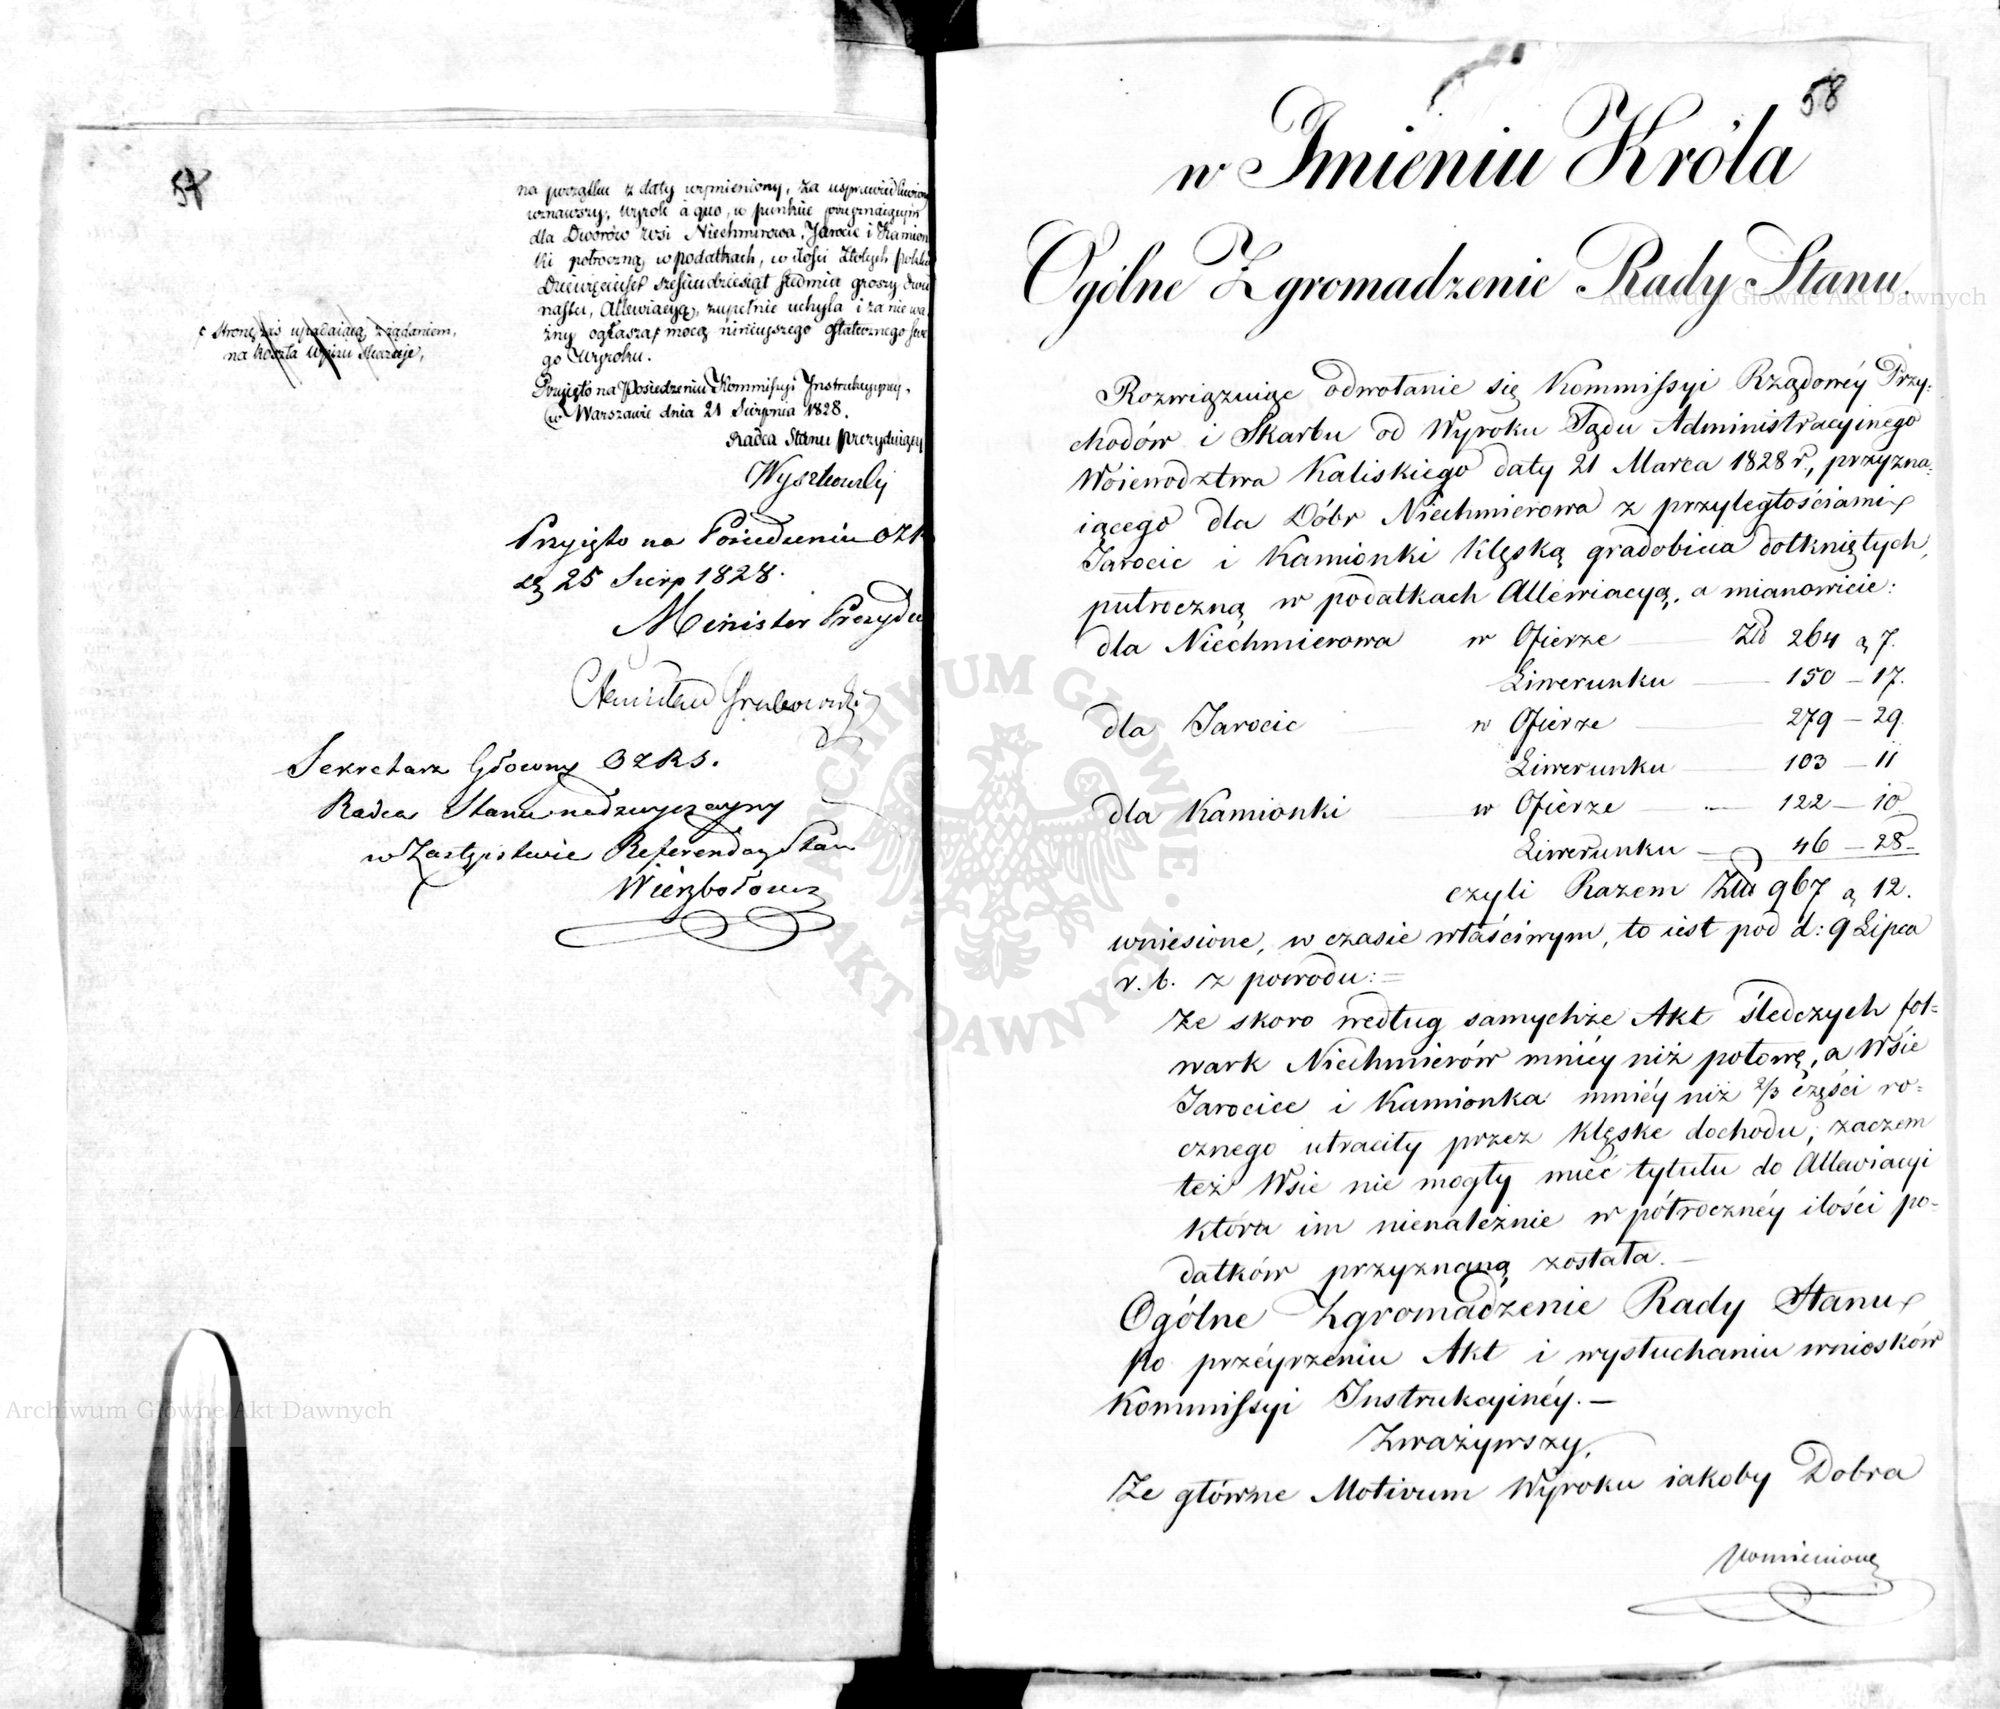 57
na początku z daty wymieniony, za usprawiedliwione
uznawszy, wyrok à quo, w punkcie przyznaiącym
dla Dworów wsi Niechmirowa, Jarocic i Kamion
ki półroczną w podatkach, w ilości Złotych polski
Dziewięciset sześćdziesiąt siedmiu groszy dwu
nastu, Allewiacyą, zupełnie uchyla i za nie wa
żny ogłasza, mocą ninieyszego ostatecznego swe
go Wyroku.
Stronę zaś upadaiącą, z żądaniem,
na koszta wpisu skazuje,
Przyjęto na Posiedzeniu Kommissyi Instrukcyjney,
w Warszawie dnia 21 Sierpnia 1828.
Radca Stanu prezyduiący
Przyięto na Posiedzeniu OZR
25 Sierp 1828.
Minister Prezydu
Stanisław Grabowski
Sekretarz Główny OZRS.
Radca Stanu nadzwyczayny
w Zastępstwie Referendarz Stanu
58
w Imieniu Króla
Ogólne Zgromadzenie Rady Stanu.
Rozwiązuiąc odwołanie się Kommissyi Rządowéy Przy-
chodów i Skarbu od Wyroku Sądu Administracyinego
Woiewodztwa Kaliskiego daty 21 Marca 1828 r, przyzna-
iącego dla Dóbr Niechmierowa z przyległościami
Jarocic i Kamionki klęską gradobicia dotkniętych,
pułroczną w podatkach Allewiacyą, a mianowicie:
dla Niechmierowa w Ofierze Złł 264 g 7.
Liwerunku 150 – 17.
dla Jarocic w Ofierze 279 – 29
Liwerunku 103 – 11
dla Kamionki w Ofierze 122 – 10
Liwerunku 46 – 28
czyli Razem Złł 967 g 12.
wniesione, w czasie właściwym, to iest pod d: 9 Lipca
r. b. z powodu:
Że skoro według samychże Akt śledczych fol-
wark Niechmierów mniéy niż połowę, a Wsie
Jarocice i Kamionka mniéy niż 2/3 części ro-
cznego utraciły przez klęske dochodu, zaczem
też Wsie nie mogły mieć tytułu do Allewiacyi
która im nienależnie w półrocznéy ilości po-
datków przyznaną została. –
Ogólne Zgromadzenie Rady Stanu
po przéyrzeniu Akt i wysłuchaniu wniosków
Kommissyi Instrukcyinéy. –
Zważywszy,
Że główne Motivum Wyroku iakoby Dobra
pomienione
Archiwum Główne Akt Dawnych
Archiwum Główne Akt Dawnych
ARCHIWUM GŁÓWNE AKT DAWNYCH